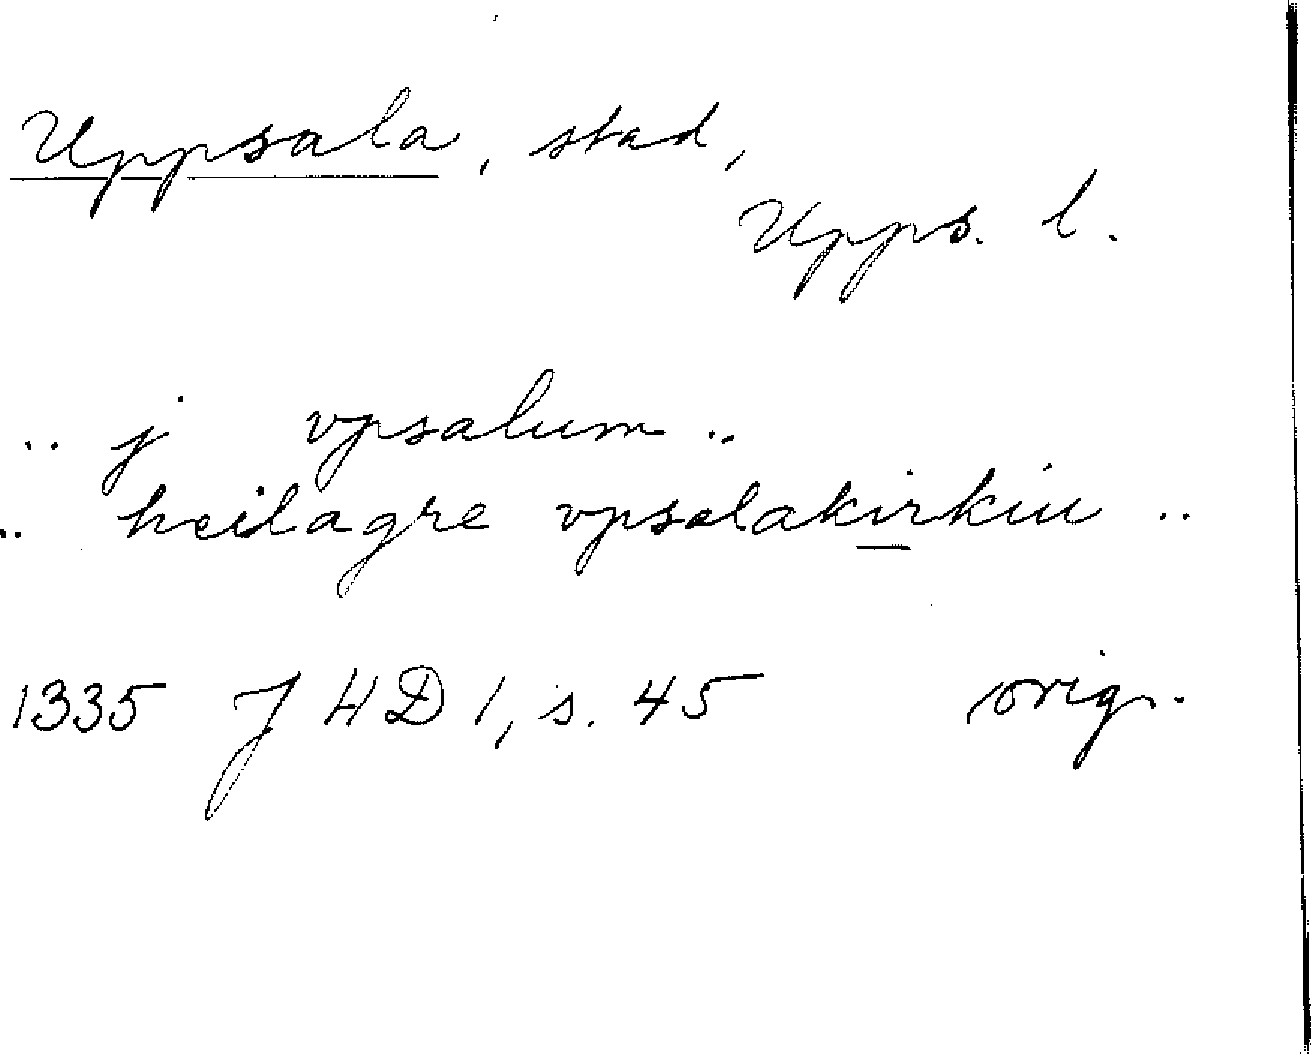 Uppsala, stad,
Upps. l.
.. j vpsalum ..
.. heilagre vpsalakirkiu ..
1335 JHD 1, s. 45 orig.